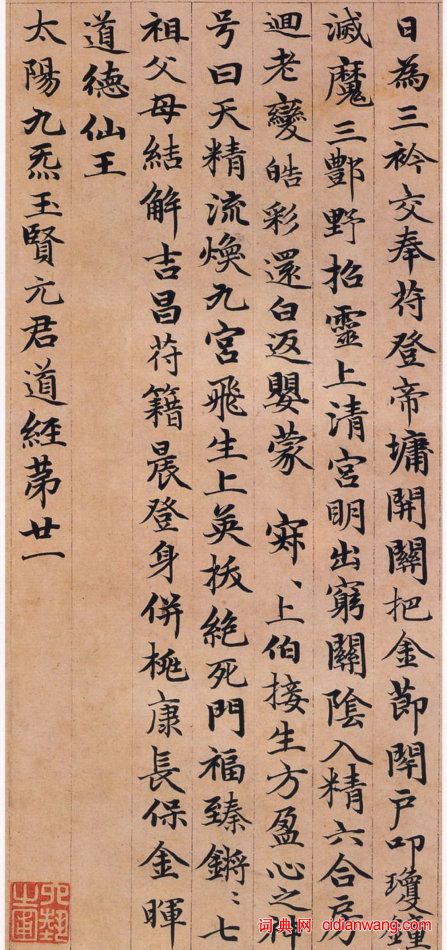 日為三衿交奉苻登帝墉開關把金莭開戶叩瓊鍾
滅魔三酆野招靈上清宮明出窮關陰入精六合
迴老變皓彩還白返嬰蒙 寀、上伯接生方盈心之神
号曰天精流煥九宮飛生上英拔絕死門福臻鏘〻七
祖父母結解吉昌苻籍晨登身併桃康長保金暉
道德仙王
太陽九炁玉賢元君道經苐廿一
词典网 cidianwang.com